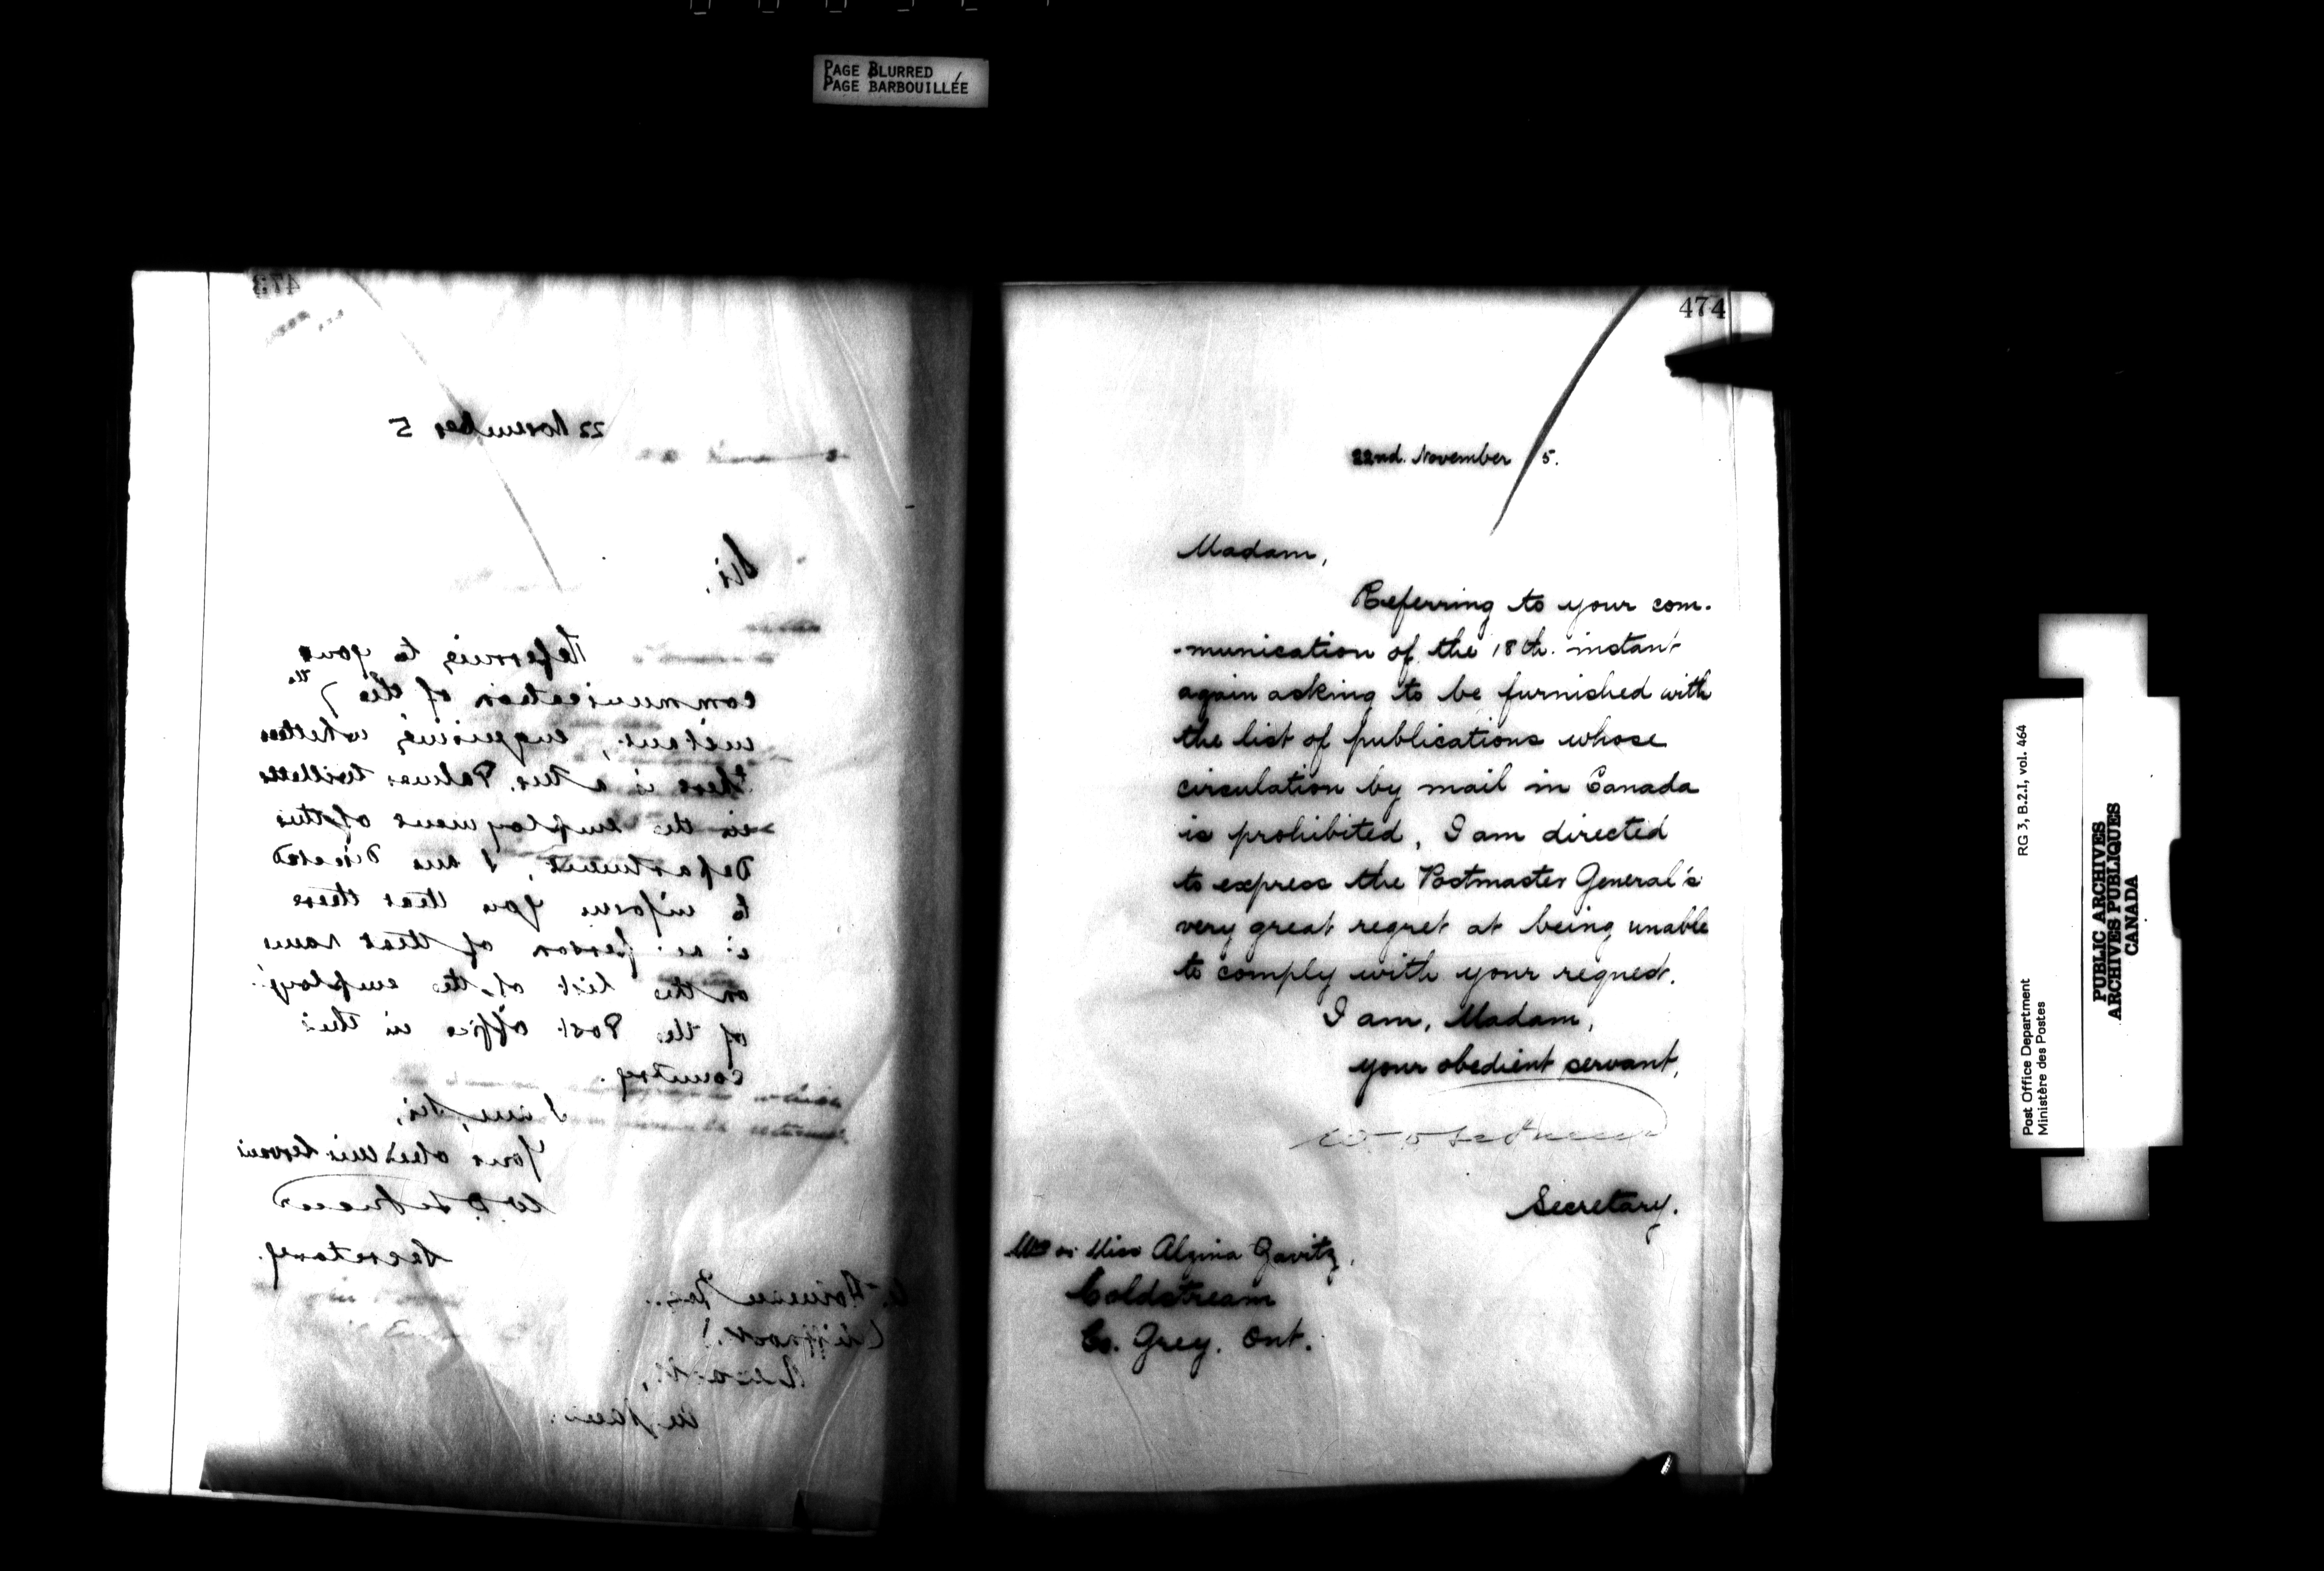 PAGE BLURRED
PAGE BARBOUILLÉE
473
22 November 5
Sir.
Referring to your
communication of the 7th
instant, enquiring whether
there is a Mr. Palmer Willetts
in the employment of this
Department, I am directed
to inform you that there
is no person of that name
on the list of the employés
of the Post Office in this
country.
I am, Sir,
Your obedient Servant
Secretary.
474
22nd. November 5.
Madam,
Referring to your com-
-munication of the 18th. instant
again asking to be furnished with
the list of publications whose
circulation by mail in Canada
is prohibited, I am directed
to express the Postmaster General's
very great regret at being unable
to comply with your request.
I am, Madam,
your obedient servant,
Secretary.
Mrs or Miss Alzina Zavitz,
Coldstream
Co. Grey. Ont.
Post Office Department
Ministère des Postes
RG 3, B.2.I, vol. 464
PUBLIC ARCHIVES
ARCHIVES PUBLIQUES
CANADA